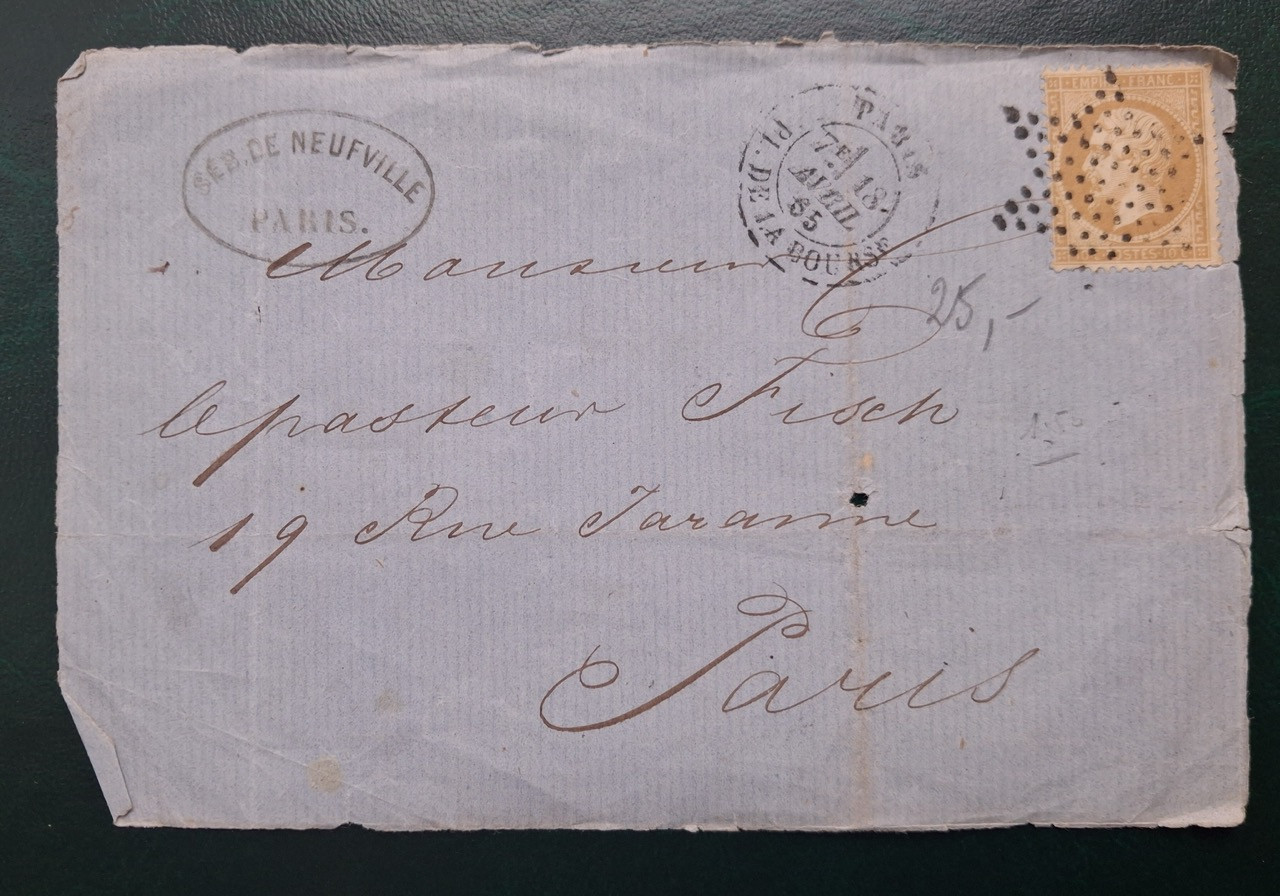 SÉB. DE NEUFVILLE
PARIS.
PARIS
7E
18
AVRIL
65
PL. DE LA BOURSE
EMPIRE FRANC
POSTES 10 C
Monsieur
25,-
le pasteur Fisch
19 Rue Taranne
Paris